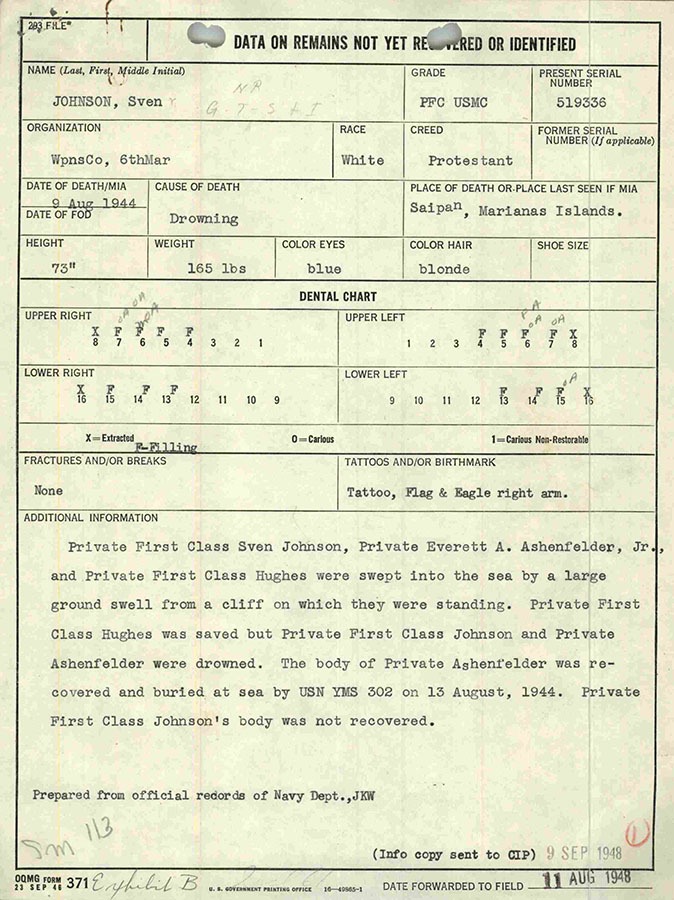 293 FILE
DATA ON REMAINS NOT YET RECOVERED OR IDENTIFIED
NAME (Last, First, Middle Initial)
JOHNSON, Sven
NR
G-T-S & I
GRADE
PFC USMC
PRESENT SERIAL
NUMBER
519336
ORGANIZATION
WpnsCo, 6thMar
RACE
White
CREED
Protestant
FORMER SERIAL
NUMBER (If applicable)
DATE OF DEATH/MIA
9 Aug 1944
DATE OF FOD
CAUSE OF DEATH
Drowning
PLACE OF DEATH OR PLACE LAST SEEN IF MIA
Saipan, Marianas Islands.
HEIGHT
73"
WEIGHT
165 lbs
COLOR EYES
blue
COLOR HAIR
blonde
SHOE SIZE
DENTAL CHART
UPPER RIGHT
OA OA
X F F F F
8 7 6 5 4 3 2 1
UPPER LEFT
OA OA
F F F F X
1 2 3 4 5 6 7 8
LOWER RIGHT
X F F F
16 15 14 13 12 11 10 9
LOWER LEFT
OA
F F F X
9 10 11 12 13 14 15 16
X=Extracted
F-Filling
O=Carious
1=Carious Non-Restorable
FRACTURES AND/OR BREAKS
None
TATTOOS AND/OR BIRTHMARK
Tattoo, Flag & Eagle right arm.
ADDITIONAL INFORMATION
Private First Class Sven Johnson, Private Everett A. Ashenfelder, Jr.,
and Private First Class Hughes were swept into the sea by a large
ground swell from a cliff on which they were standing. Private First
Class Hughes was saved but Private First Class Johnson and Private
Ashenfelder were drowned. The body of Private Ashenfelder was re-
covered and buried at sea by USN YMS 302 on 13 August, 1944. Private
First Class Johnson's body was not recovered.
Prepared from official records of Navy Dept.,JKW
SM 113
(Info copy sent to CIP) 9 SEP 1948
1
OQMG FORM
23 SEP 46 371
Exhibit B
U. S. GOVERNMENT PRINTING OFFICE 16—49865-1
DATE FORWARDED TO FIELD 11 AUG 1948